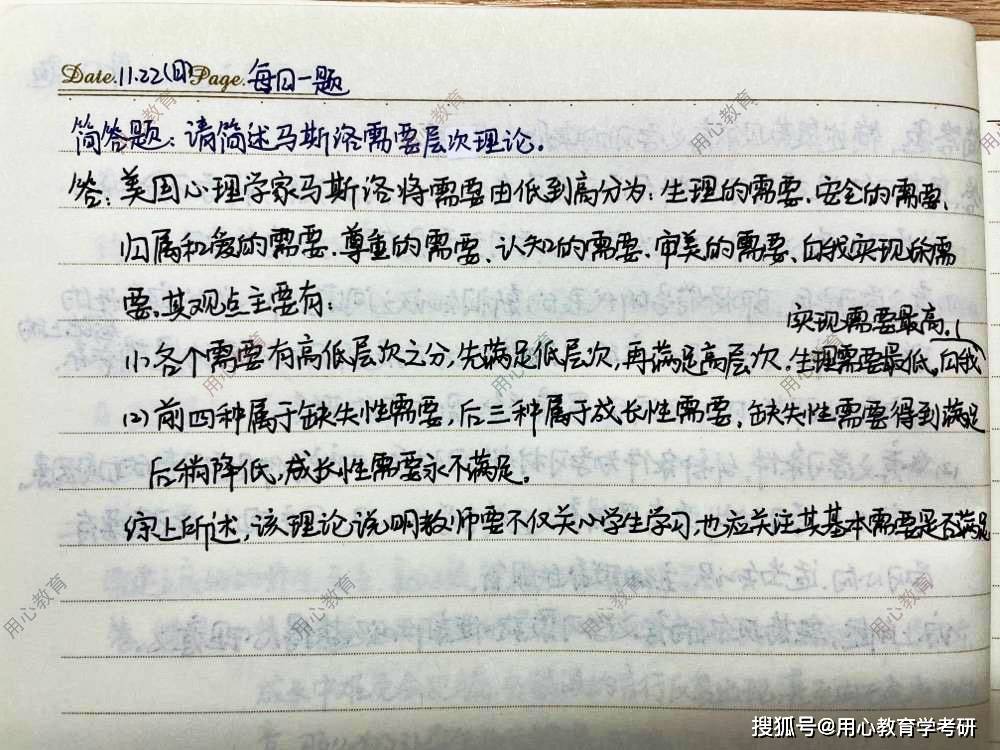 Date.11.22(日)Page.每日一题
简答题:请简述马斯洛需要层次理论.
答:美国心理学家马斯洛将需要由低到高分为:生理的需要、安全的需要、
归属和爱的需要、尊重的需要、认知的需要、审美的需要、自我实现的需
要。其观点主要有:
实现需要最高.
(1)各个需要有高低层次之分,先满足低层次,再满足高层次.生理需要最低,自我
(2)前四种属于缺失性需要,后三种属于成长性需要,缺失性需要得到满足
后稍降低,成长性需要永不满足。
综上所述,该理论说明教师要不仅关心学生学习,也应关注其基本需要是否满足
用心教育
用心教育
用心教育
用心教育
用心教育
用心教育
用心教育
用心教育
用心教育
用心教育
用心教育
用心教育
搜狐号@用心教育学考研